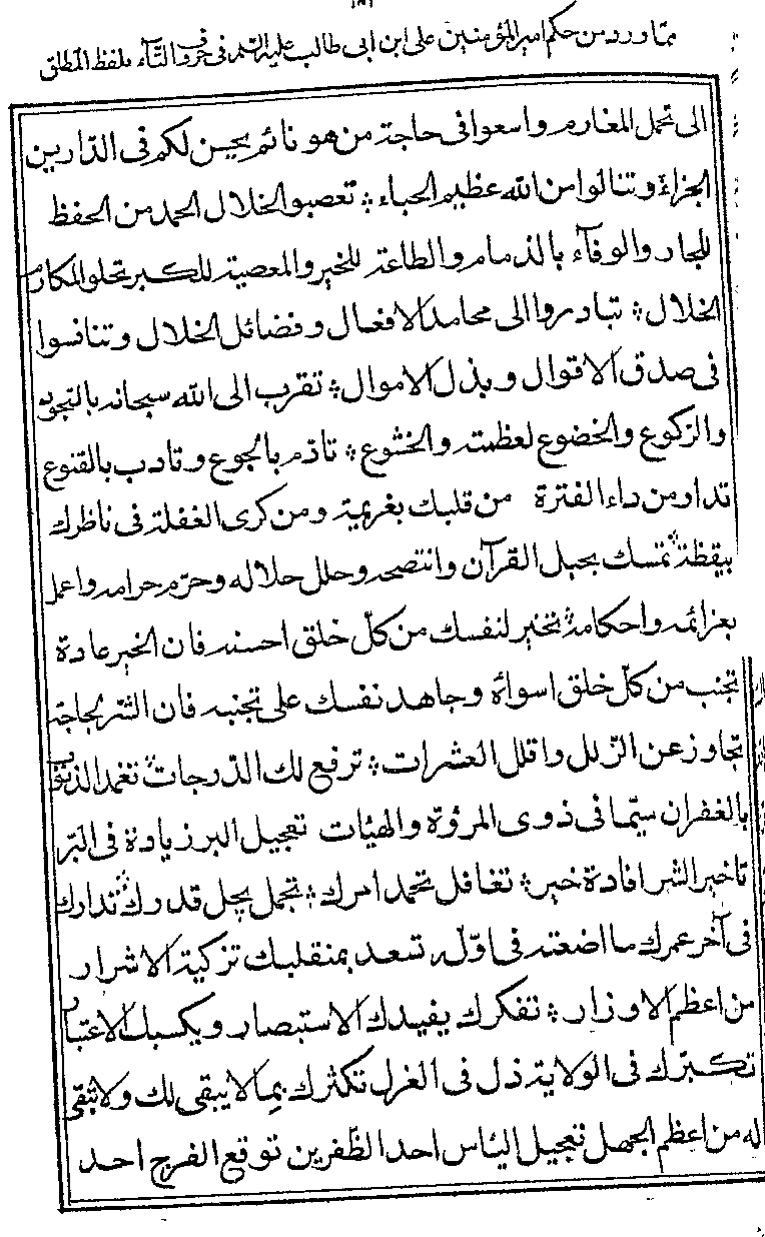 ١٥١
مما ورد من حكم امير المؤمنين على ابن ابى طالب عليه السلم فى حرف التاء بلفظ المطلق
الى تحمل المغارم واسعوا فى حاجة من هو نائم يحسن لكم فى الدّارين
الجزاء وتنالوا من الله عظيم الحباء تعصبوا لخلال الحمد من الحفظ
للجار والوفاء بالذمام والطاعة للخير والمعصية للكبر تحلوا لمكارم
الخلال تبادروا الى محامد الافعال وفضائل الخلال وتنافسوا
فى صدق الاقوال وبذل الاموال تقرب الى الله سبحانه بالسجود
والركوع والخضوع لعظمته والخشوع تادّم بالجوع وتادب بالقنوع
تداو من داء الفترة من قلبك بعزيمة ومن كرى الغفلة فى ناظرك
بيقظة تمسك بحبل القرآن وانتصحه وحلل حلاله وحرّم حرامه واعمل
بعزائمه واحكامه تخير لنفسك من كلّ خلق احسنه فان الخير عادة
تجنب من كلّ خلق اسوأه وجاهد نفسك على تجنبه فان الشر لجاجة
تجاوز عن الزّلل واقلل العثرات ترفع لك الدّرجات تغمد الذنوب
بالغفران سيّما فى ذوى المروّة والهيئات تعجيل البر زيادة فى البّر
تاخير الشر افادة خير تغافل تحمد امرك تجمل يجل قدرك تدارك
فى آخر عمرك ما اضعته فى اوّله تسعد بمنقلبك تزكية الاشرار
من اعظم الاوزار تفكرك يفيدك الاستبصار ويكسبك الاعتبار
تكبّرك فى الولاية ذل فى العزل تكثرك بما لا يبقى لك ولا تبقى
له من اعظم الجهل تعجيل الياس احد الظّفرين توقع الفرج احد